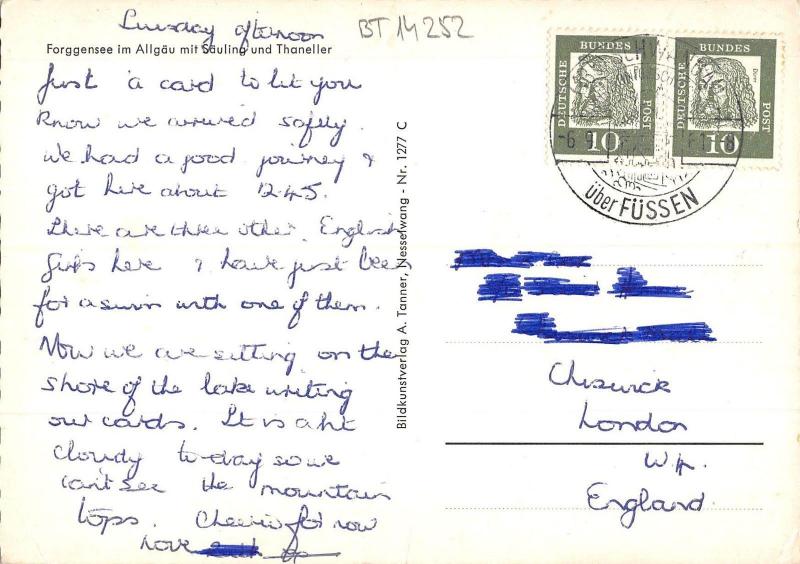 afternoon
BT 14252
Forggensee im Allgäu mit Säuling und Thaneller
Just a card to let you
know we arrived safely.
We had a good journey &
got here about 12.45.
There are three other English
girls here & have just been
for a swim with one of them.
Now we are sitting on the
shore of the lake writing
our cards. It is a bit
cloudy to-day so we
can't see the mountain
tops. Cheerio for now
Love
Bildkunstverlag A. Tanner, Nesselwang - Nr. 1277 C
DEUTSCHE BUNDESPOST
10
DEUTSCHE BUNDESPOST
10
über FÜSSEN
Chiswick
London
W4.
England.